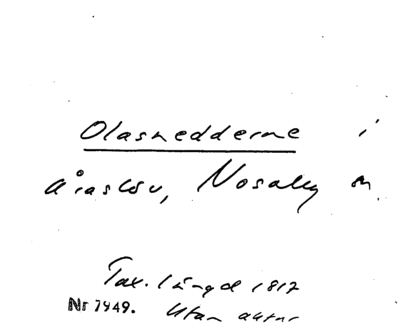 Olasmedderne i
Åraslöv, Nosaby sn.
Tax. längd 1812
Nr 7949. Utan autor